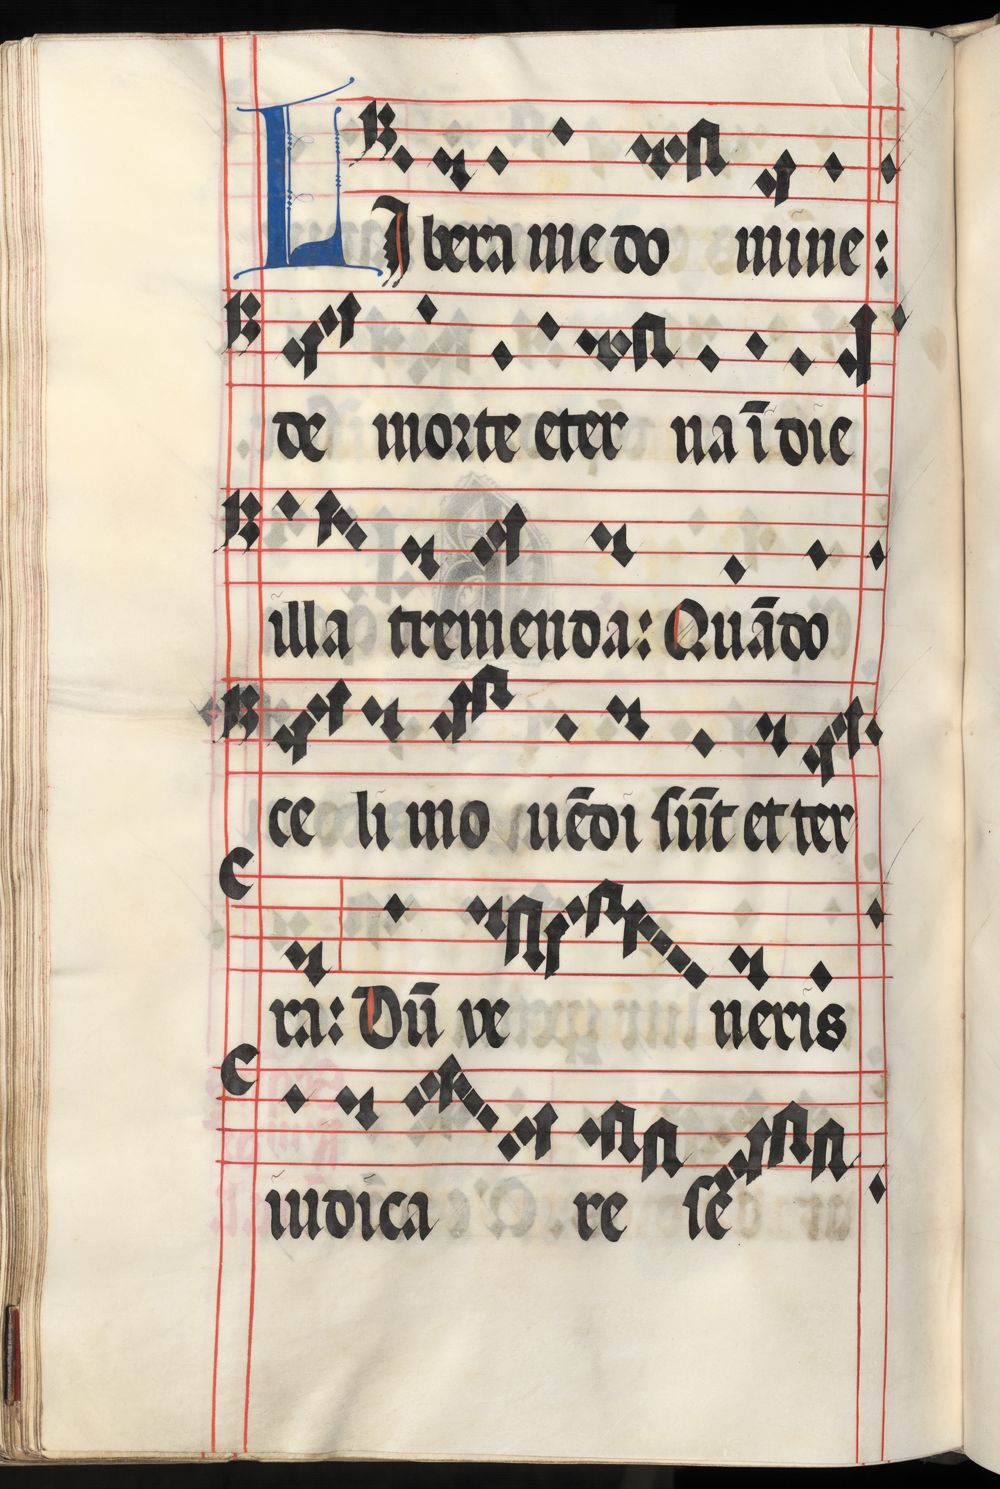 LIbera me do mine:
de morte eter na ī die
illa tremenda: Quādo
ce li mo uēdi sūt et ter
ra: Dū ve neris
iudica re sē